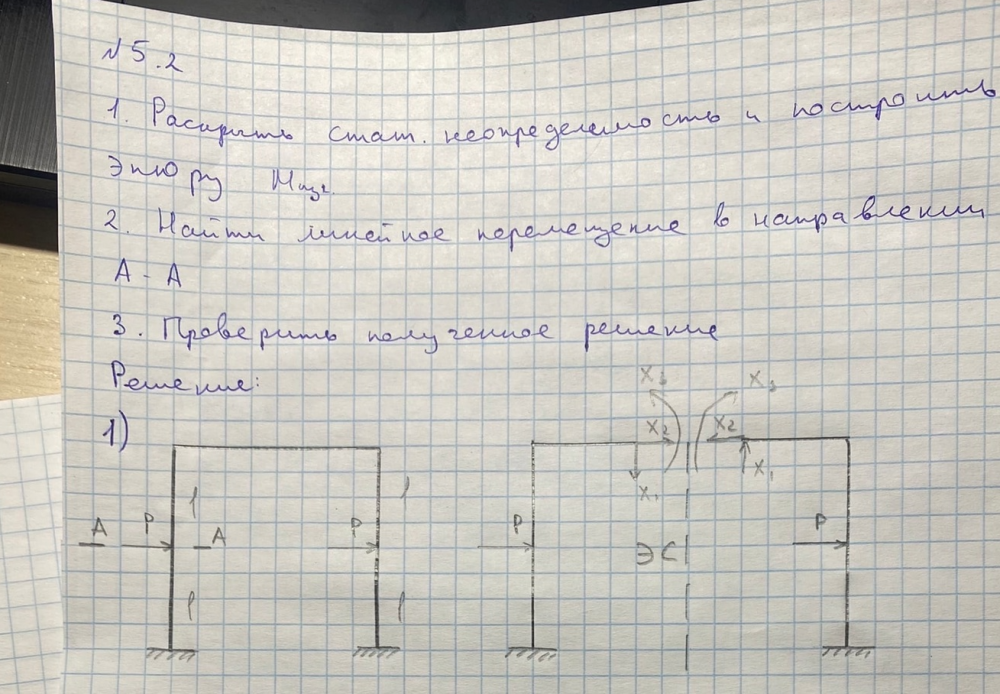 №5.2
1. Раскрыть стат. неопределимость и построить
Эпюру Mизг.
2. Найти линейное перемещение в направлении
A - A
3. Проверить полученное решение
Решение:
1)
X₃ X₃
X₂ X₂
X₁ X₁
l l
A P A P P ЭС P
l l